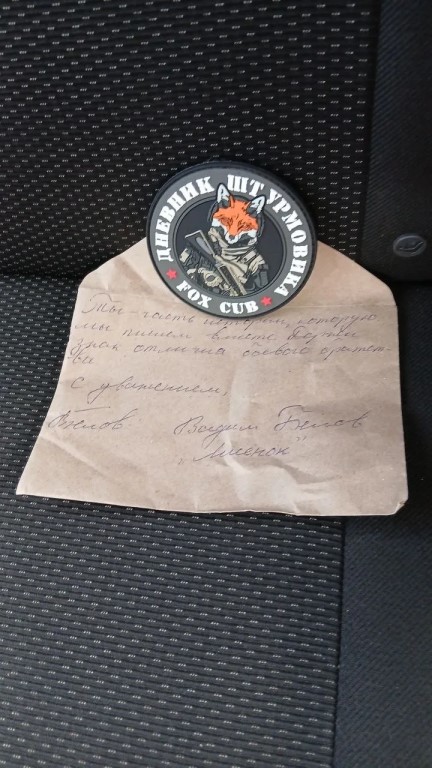 ДНЕВНИК ШТУРМОВИКА
FOX CUB
Ты - часть истории, которую
мы пишем вместе. Держи
знак отличия боевого братст-
ва
С уважением,
Белов Вадим Белов
"Лисёнок"